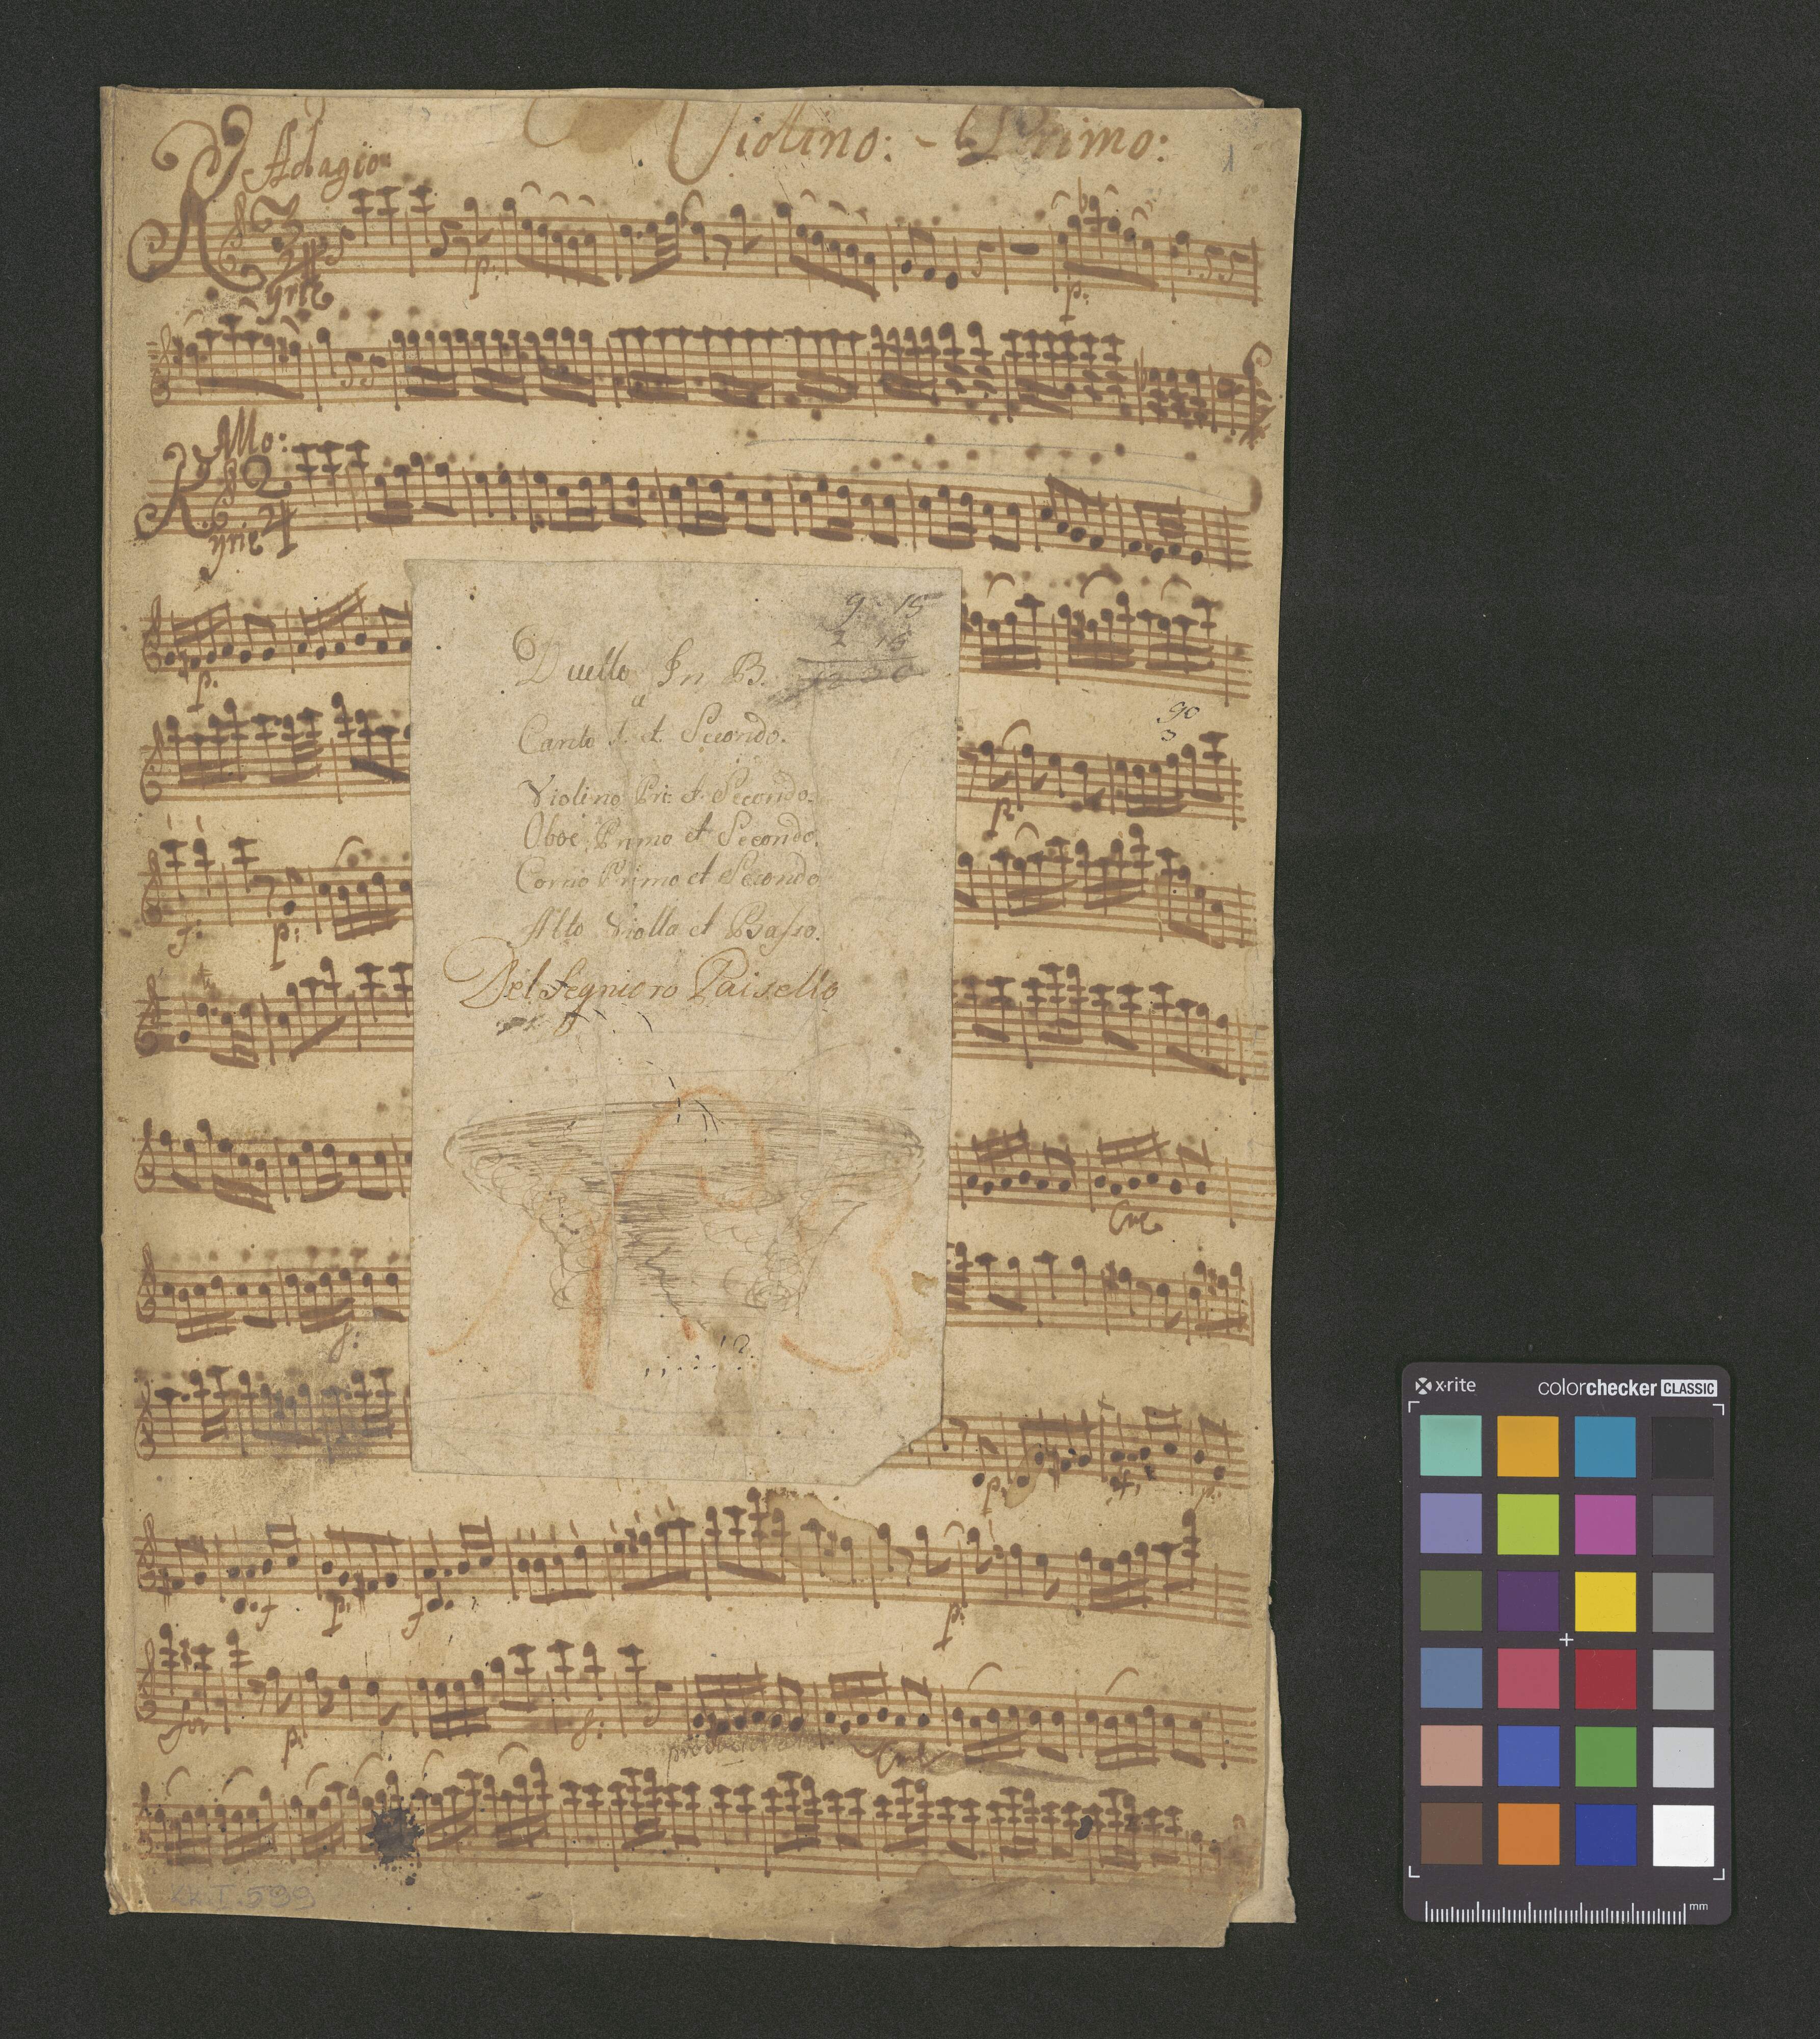 Violino: - Primo:
1
Adagio
3
Kyrie
p:
p:
Allo:
2
4
Kyrie
p:
9 15
2 15
Duetto In B.
a
Canto 1. et Secondo.
Violino Pri: et Secondo.
Oboe, Primo et Secondo.
Corno Primo et Secondo
Alto Violla et Basso.
Del Segnioro Paisello
90
3
p:
f: p:
f:
p: f: p:
f p: f
p:
for p: f:
Kk. I. 599
x-rite colorchecker CLASSIC
mm